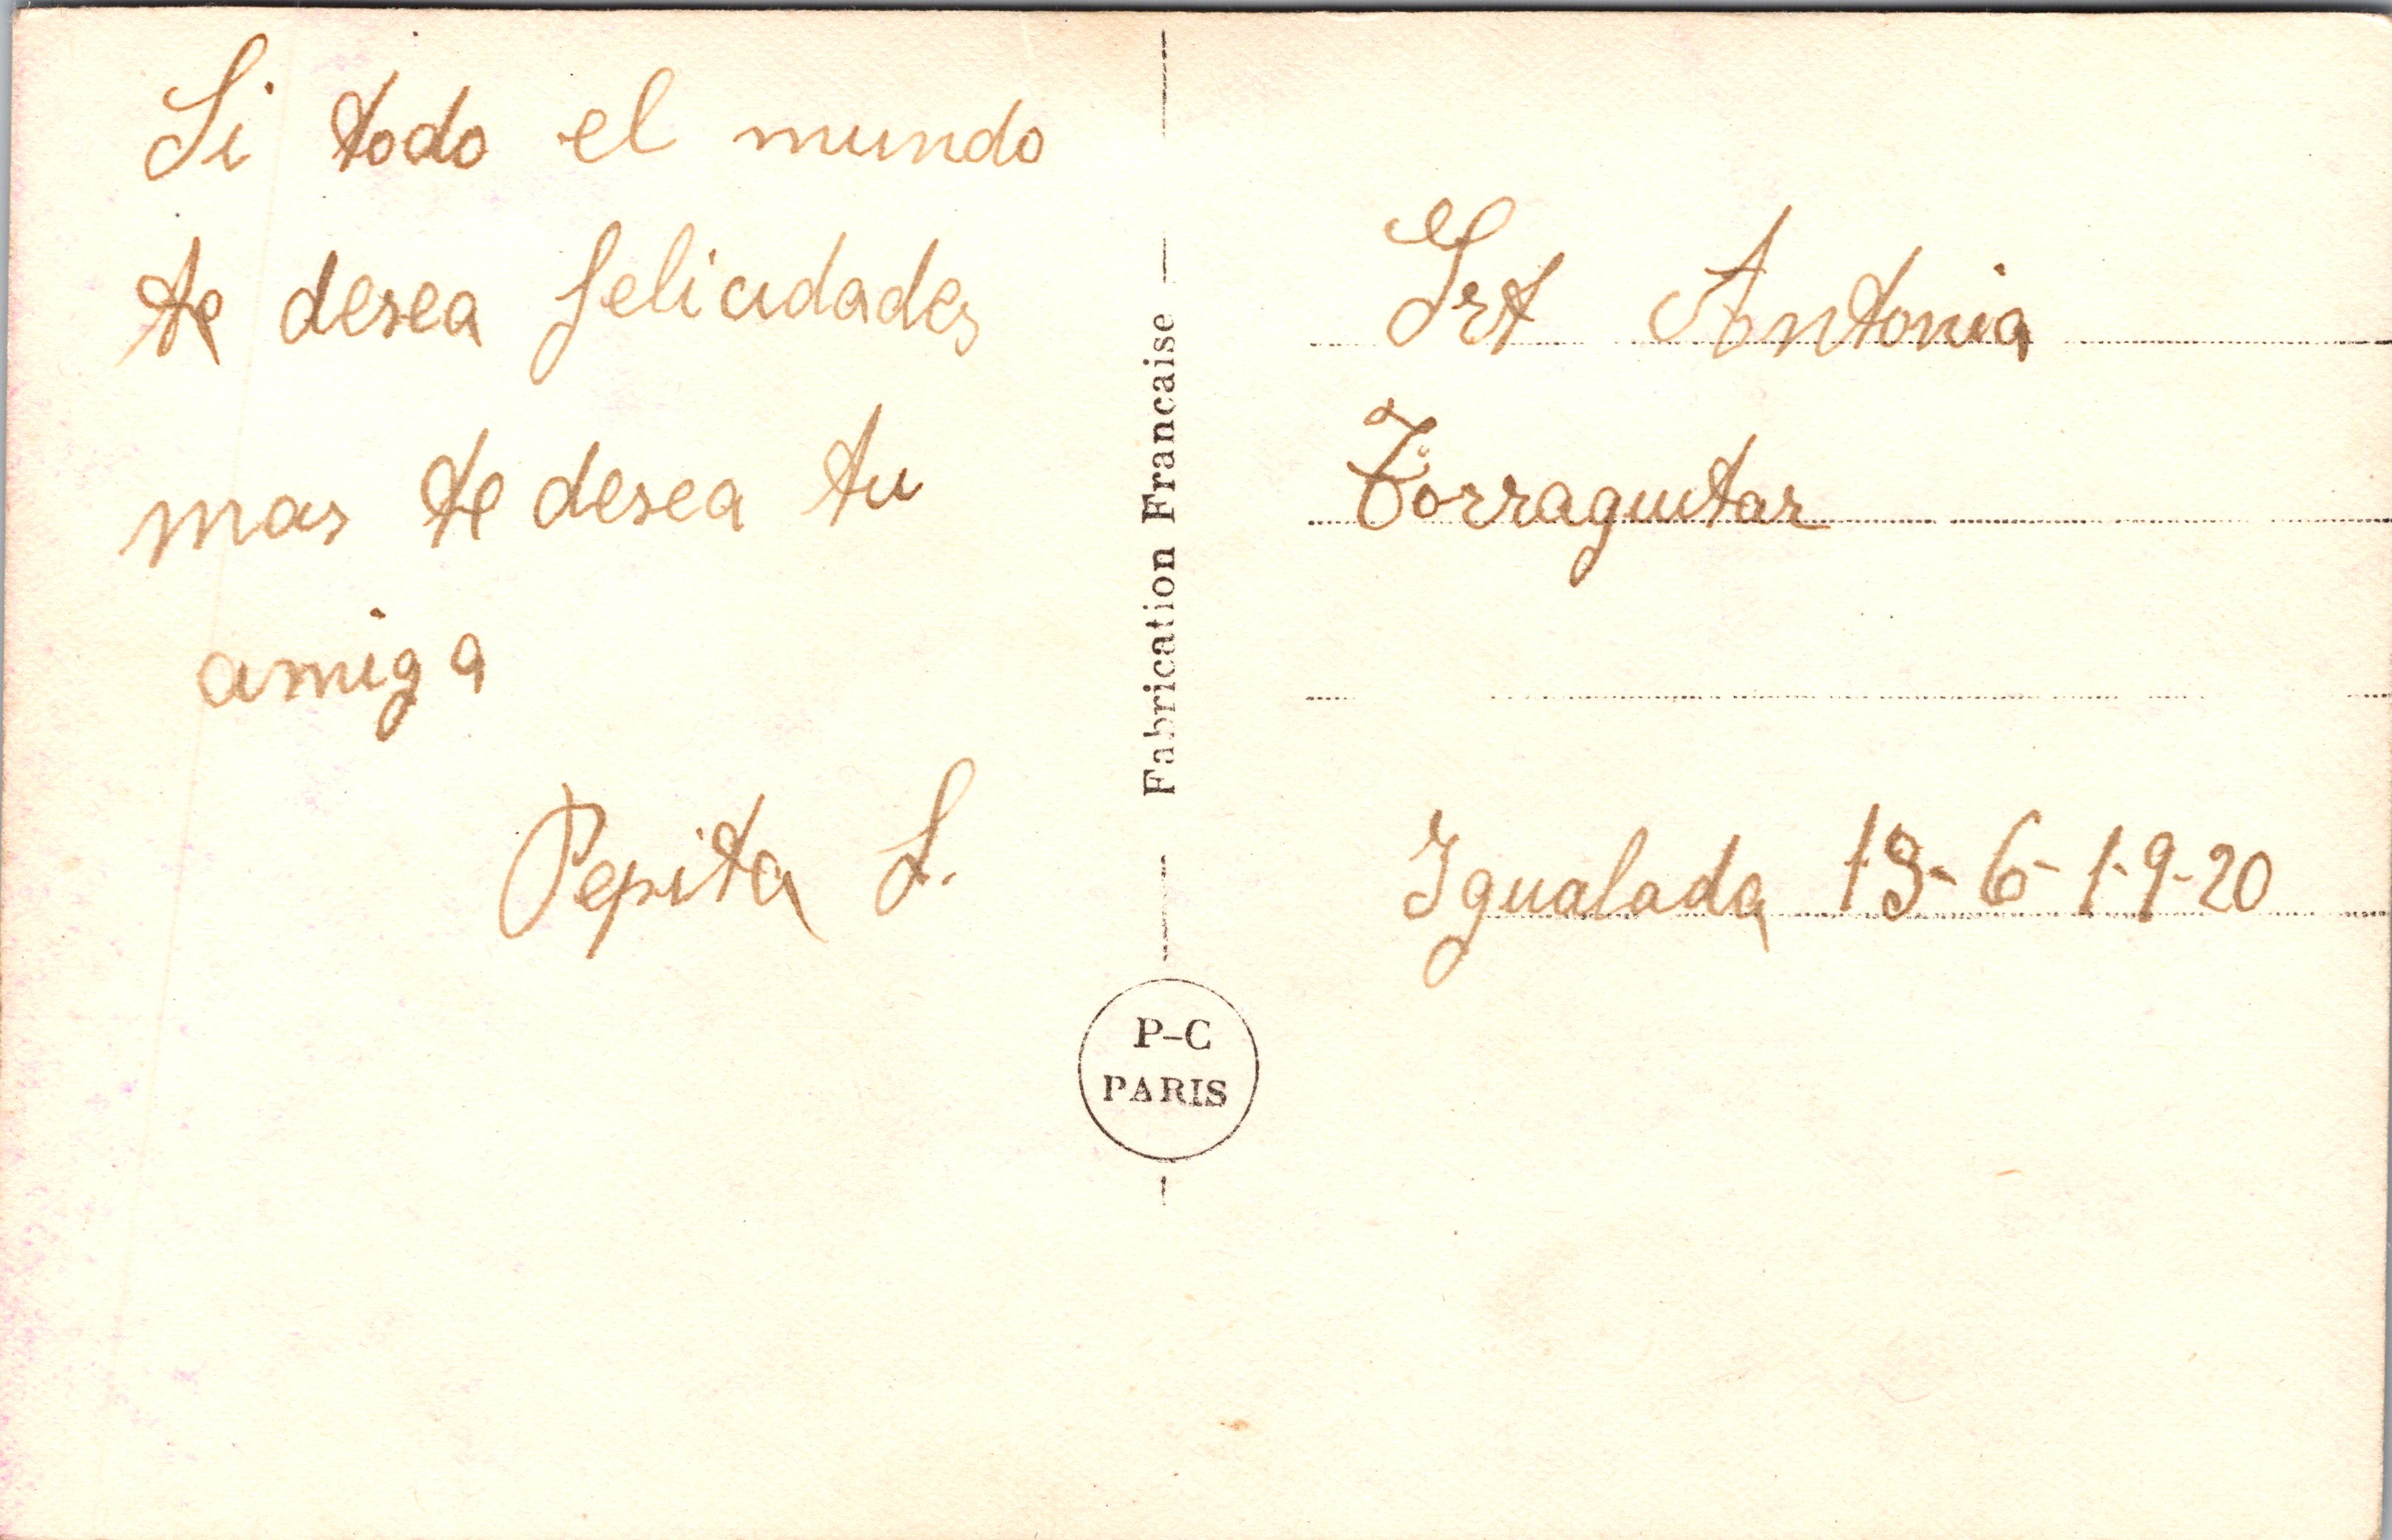 Si todo el mundo
te desea felicidades
mas te desea tu
amiga
Pepita S.
Fabrication Francaise
P-C
PARIS
Srt Antonia
Torraguitar
Igualada 13-6-1-9-20